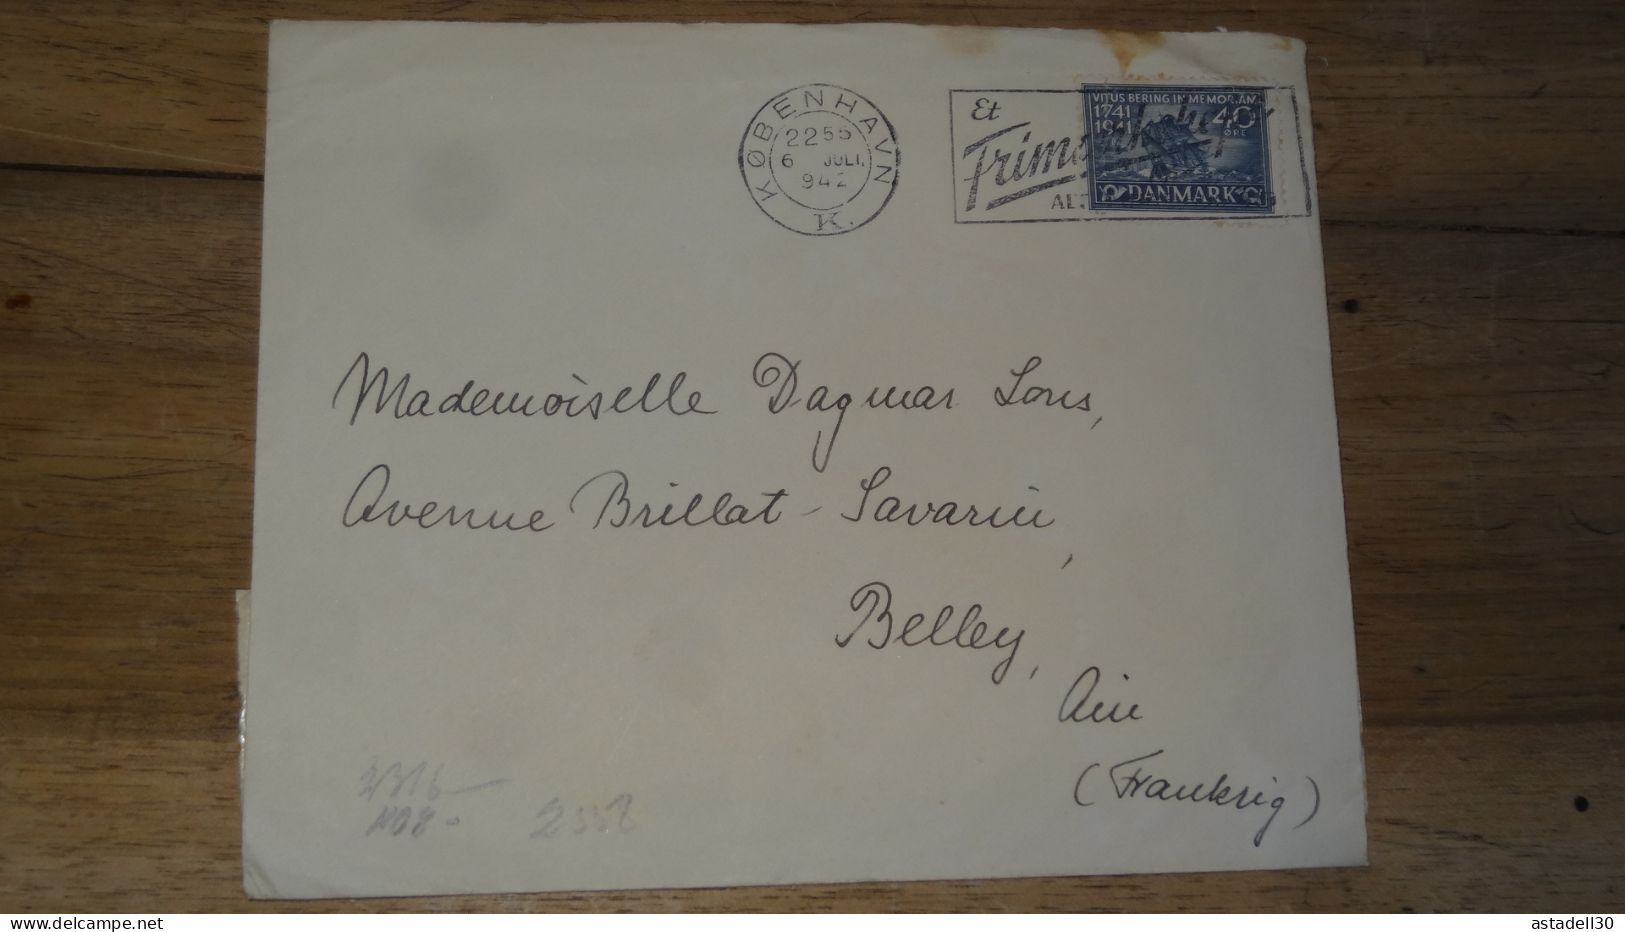 KØBENHAVN
2255
6 JULI.
942
K.
Et
Frimærkehefte
VITUS BERING IN MEMORIAM
1741
1941
40
ØRE
DANMARK
Mademoiselle Dagmar Lons,
Avenue Brillat-Savarin,
Belley,
Ain
(Frankrig)
2558
delcampe.net
astadell30